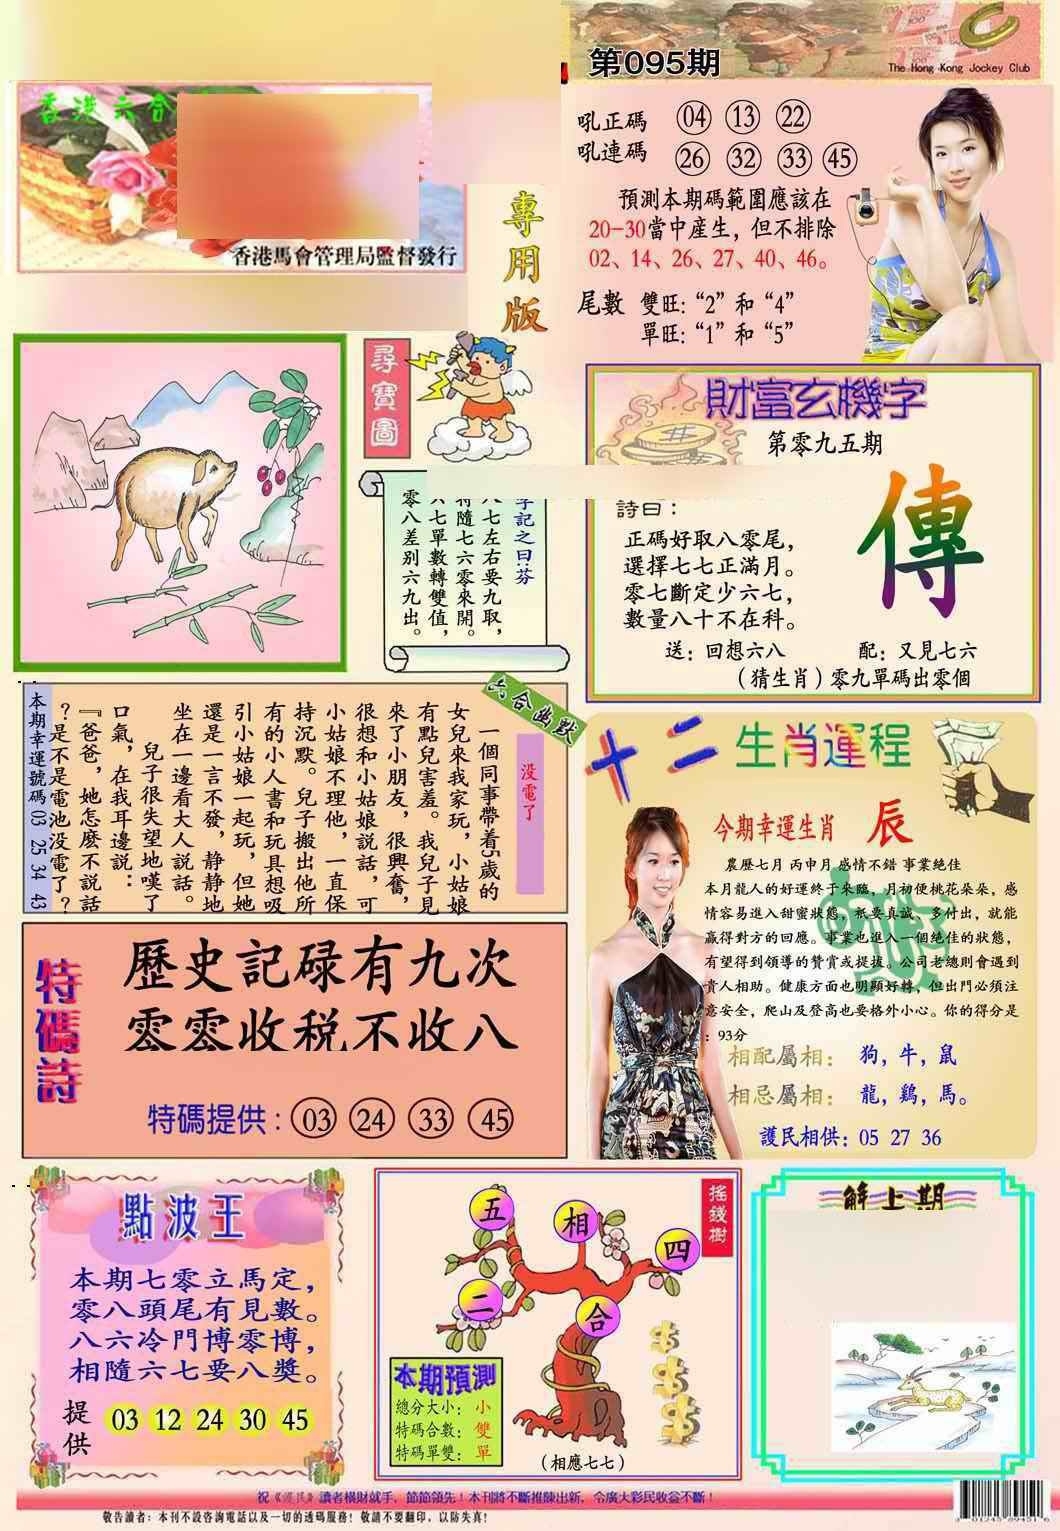 第095期
The Hong Kong Jockey Club
香港六合
香港馬會管理局監督發行
專用版
吼正碼 04 13 22
吼連碼 26 32 33 45
預測本期碼範圍應該在
20-30當中産生，但不排除
02、14、26、27、40、46。
尾數 雙旺:“2”和“4”
單旺:“1”和“5”
尋寶圖
字記之曰:芬
八七左右要九取，
特隨七六零來開。
六七單數轉雙值，
零八差别六九出。
財富玄機字
第零九五期
詩曰：
正碼好取八零尾，
選擇七七正滿月。
零七斷定少六七，
數量八十不在科。
傳
送: 回想六八 配: 又見七六
(猜生肖)零九單碼出零個
六合幽默
没電了
一個同事帶着5歲的
女兒來我家玩，小姑娘
有點兒害羞。我兒子見
來了小朋友，很興奮，
很想和小姑娘說話，可
小姑娘不理他，一直保
持沉默。兒子搬出他所
有的小人書和玩具想吸
引小姑娘一起玩，但她
還是一言不發，静静地
坐在一邊看大人説話。
兒子很失望地嘆了
口氣，在我耳邊説：
『爸爸，她怎麽不説話
？是不是電池没電了？
本期幸運號碼 03 25 34 43
十二生肖運程
今期幸運生肖 辰
農歷七月 丙申月 感情不錯 事業絶佳
本月龍人的好運終于來臨，月初便桃花朵朵，感
情容易進入甜蜜狀態，衹要真誠、多付出，就能
贏得對方的回應。事業也進入一個絶佳的狀態，
有望得到領導的贊賞或提拔。公司老總則會遇到
貴人相助。健康方面也明顯好轉，但出門必須注
意安全，爬山及登高也要格外小心。你的得分是
：93分
相配屬相： 狗，牛，鼠
相忌屬相： 龍，鷄，馬。
護民相供: 05 27 36
特碼詩
歷史記碌有九次
零零收税不收八
特碼提供: 03 24 33 45
點波王
本期七零立馬定，
零八頭尾有見數。
八六冷門博零博，
相隨六七要八獎。
提供 03 12 24 30 45
搖錢樹
五
相
四
二
合
本期預測
總分大小: 小
特碼合數: 雙
特碼單雙: 單
(相應七七)
解上期
祝《護民》讀者橫財就手，節節領先！本刊將不斷推陳出新，令廣大彩民收益不斷！
敬告讀者: 本刊不設咨詢電話以及一切的透碼服務! 敬請不要翻印，以防失真!